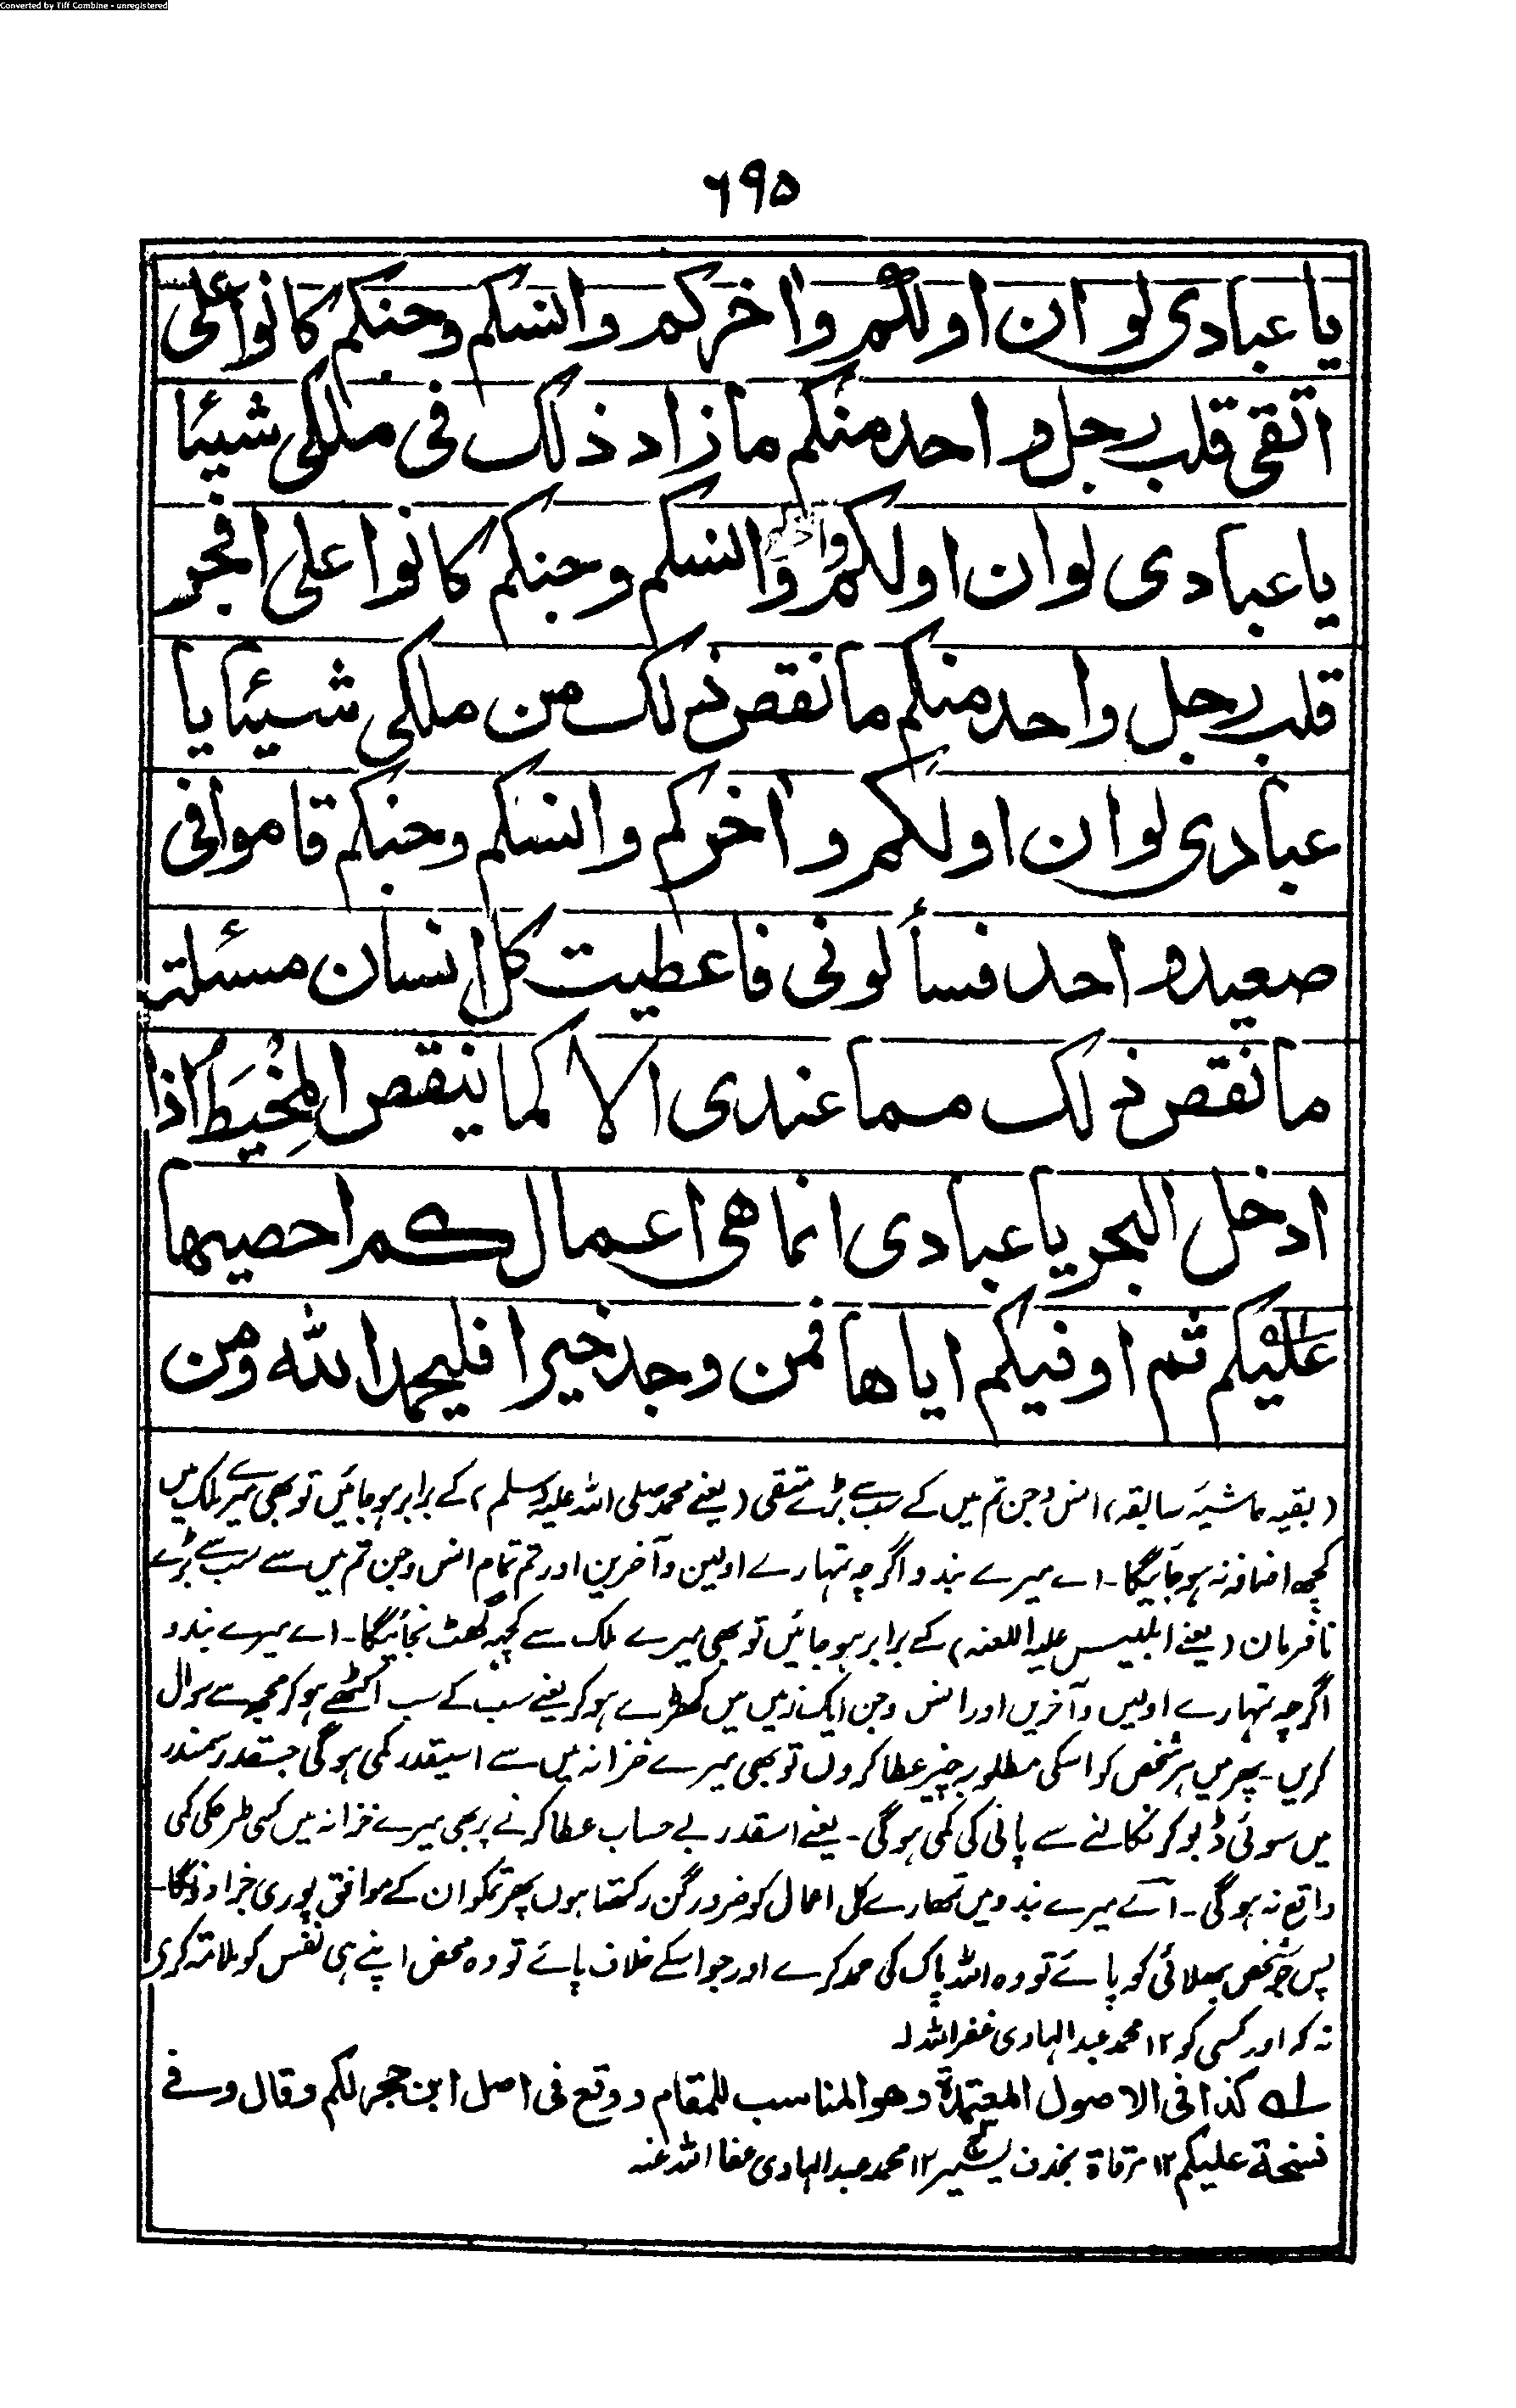 Converted by Tiff Combine - unregistered
۶۹۵
یا عبادی لو ان اولکم واخرکم وانسکم وجنکم کانوا علی
اتقی قلب رجل واحد منکم ما زاد ذلک فی ملکی شیئا
یا عبادی لو ان اولکم واخرکم وانسکم وجنکم کانوا علی افجر
قلب رجل واحد منکم ما نقص ذلک من ملکی شیئا یا
عبادی لو ان اولکم واخرکم وانسکم وجنکم قاموا فی
صعید واحد فسألونی فاعطیت کل انسان مسئلتہ
ما نقص ذلک مما عندی الا کما ینقص المِخْیَط اذا
ادخل البحر یا عبادی انما هی اعمالکم احصیها
علیکم ثم اوفیکم ایاها فمن وجد خیرا فلیحمد الله ومن
(بقیہ حاشیۂ سابقہ) انس وجن تم میں کے سب سے بڑے متقی (یعنے محمد صلی اللہ علیہ وسلم) کے برابر ہو جائیں تو بھی میرے ملک میں
کچھ اضافہ نہ ہو جائیگا۔ اے میرے بندو اگرچہ تمہارے اولین وآخرین اور تم تمام انس وجن تم میں سے سب سے بڑے
نافرمان (یعنے ابلیس علیہ اللعنہ) کے برابر ہو جائیں تو بھی میرے ملک سے کچھ گھٹ نجائیگا۔ اے میرے بندو
اگرچہ تمہارے اولیں وآخریں اور انس وجن ایک زمیں میں کھڑے ہو کر یعنے سب کے سب اکٹھے ہو کر مجھ سے سوال
کریں۔ پھر میں ہر شخص کو اسکی مطلوبہ چیز عطا کروں تو بھی میرے خزانہ میں سے اسیقدر کمی ہوگی جسقدر سمندر
میں سوئی ڈبو کر نکالنے سے پانی کی کمی ہوگی۔ یعنے اسقدر بے حساب عطا کرنے پر بھی میرے خزانہ میں کسی طرح کی کمی
واقع نہ ہوگی۔ اے میرے بندو میں تمھارے کل اعمال کو ضرور گن رکھتا ہوں پھر تمکو ان کے موافق پوری جزا دونگا۔
پس جو شخص بھلائی کو پائے تو وہ اللہ پاک کی حمد کرے اور جو اسکے خلاف پائے تو وہ محض اپنے ہی نفس کو ملامت کرے
نہ کہ اور کسی کو ۱۲ محمد عبد الہادی غفر اللہ لہ
لہ کذا فی الاصول المعتمدة وهو المناسب للمقام ووقع فی اصل ابن حجر لکم وقال وفی
نسخة علیکم ۱۲ مرقاة بحذف یسیر ۱۲ محمد عبد الہادی عفا اللہ عنہ